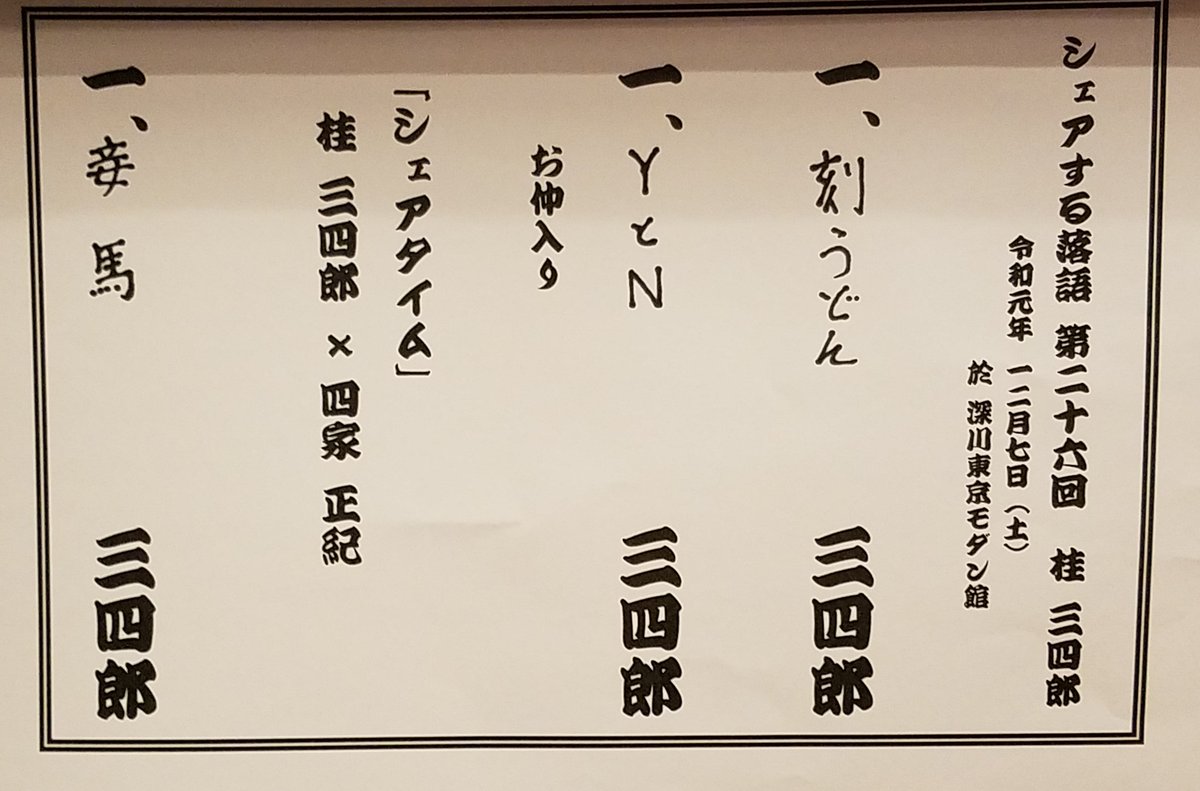 シェアする落語 第二十六回 桂 三四郎
令和元年 一二月七日(土)
於 深川東京モダン館
一、刻うどん 三四郎
一、YとN 三四郎
お仲入り
「シェアタイム」
桂 三四郎 × 四家 正紀
一、妾馬 三四郎